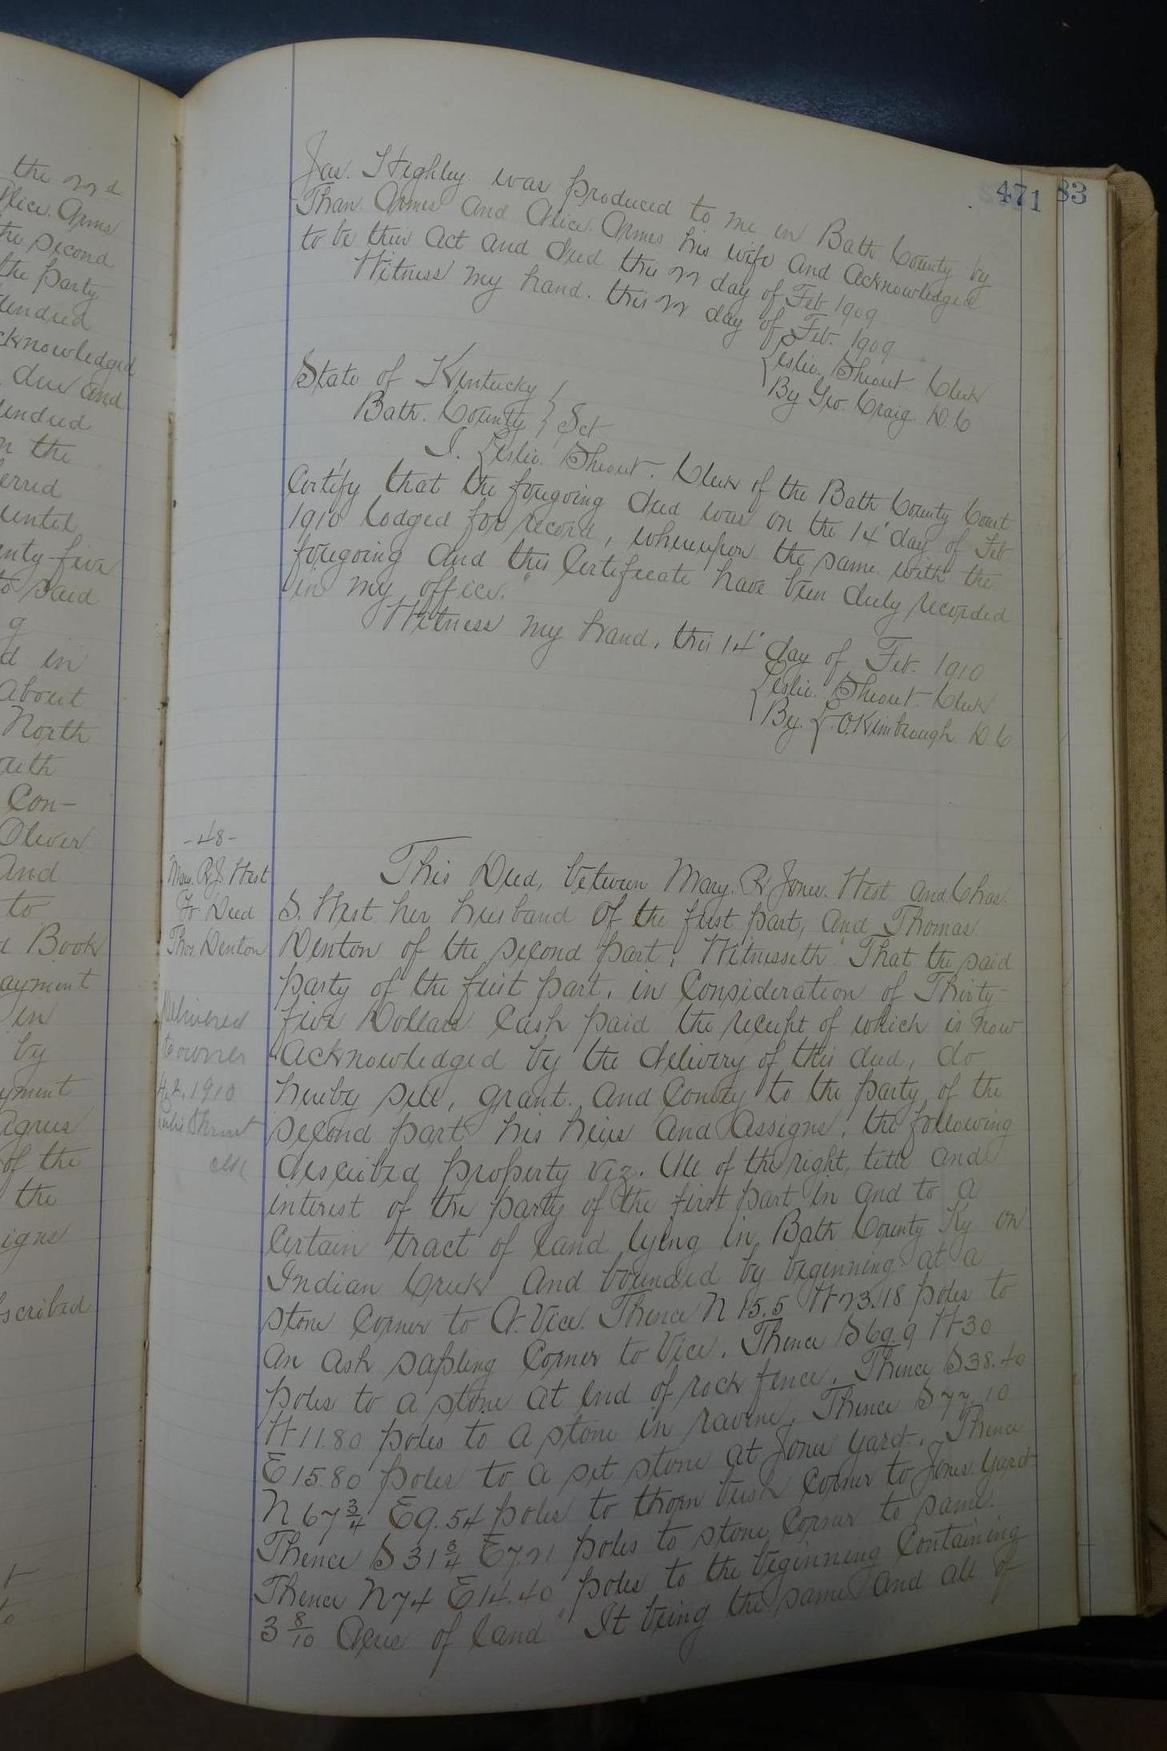 the 22d
Alice Arms
the second
the party
cknowledged
due and
n the
until
enty-five
to said
d in
About
North
Con-
Oliver
And
to
d Book
ayment
in
by
yment
agrees
of the
the
igns
scribed
471 83
Jas. Highley was produced to me in Bath County by
Than Armes and Alice Armes his wife and Acknowledged
to be their Act and deed this 22 day of Feb 1909
Witness my hand. this 22 day of Feb. 1909
Leslie Shrout Clerk
By Geo. Craig. D.C
State of Kentucky
Bath. County } Sct
I. Leslie Shrout. Clerk of the Bath County Court
Certify that the foregoing deed was on the 14' day of Feb
1910 lodged for record, whereupon the same with the
foregoing and this Certificate have been duly recorded
in my office.
Witness my hand, this 14' day of Feb. 1910
Leslie Shrout. Clerk
By. L.O. Kimbrough D.C
-48-
Mary R.J. West
To Deed
Thos. Denton
Delivered
to owner
1910
Leslie Shrout
clk
This Deed, between Mary. R. Jones. West and Chas.
S. West her husband of the first part, and Thomas
Denton of the second part: Witnesseth That the said
party of the first part, in Consideration of Thirty-
five Dollars Cash paid the receipt of which is now
acknowledged by the delivery of this deed, do
hereby sell, grant. and Convey to the party of the
second part his heirs and Assigns, the following
described property viz. All of the right, title and
interest of the party of the first part in and to a
Certain tract of land lying in Bath County Ky on
Indian Creek and bounded by beginning at a
stone Corner to A. Vice. Thence N 15.5 W 23.18 poles to
an ash sapling Corner to Vice. Thence S 69.9 W 30
poles to a stone at end of rock fence. Thence S 38.40
W 11.80 poles to a stone in ravine. Thence S 72 10
E 15.80 poles to a set stone at Jones yard. Thence
N 67 3/4 E 9.54 poles to thorn bush Corner to Jones Yard
Thence S 31 3/4 E 7.21 poles to stone Corner to same.
Thence N 74 E 14.40 poles to the beginning Containing
3 8/10 Acres of land It being the same and all of